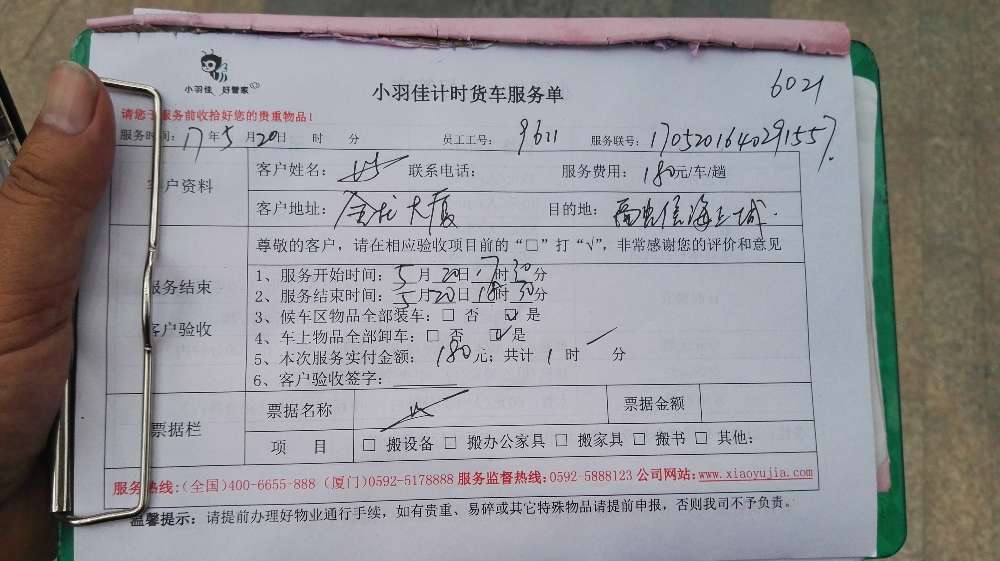 小羽佳 好管家
小羽佳计时货车服务单
6021
请您于服务前收拾好您的贵重物品!
服务时间: 17年5月20日 时 分 员工工号: 9621 服务联号: 1705201640291557
客户资料
客户姓名: 联系电话: 服务费用: 180元/车/趟
客户地址: 金龙大厦 目的地: 海上城
尊敬的客户,请在相应验收项目前的“□”打“√”,非常感谢您的评价和意见
服务结束
客户验收
1、服务开始时间: 5月20日17时30分
2、服务结束时间: 5月20日18时30分
3、候车区物品全部装车: □ 否 ☑ 是
4、车上物品全部卸车: □ 否 ☑ 是
5、本次服务实付金额: 180元; 共计 1 时 分
6、客户验收签字:
票据栏
票据名称 票据金额
项 目 □ 搬设备 □ 搬办公家具 □ 搬家具 □ 搬书 □ 其他:
服务热线:(全国)400-6655-888 (厦门)0592-5178888 服务监督热线:0592-5888123 公司网站:www.xiaoyujia.com
温馨提示: 请提前办理好物业通行手续,如有贵重、易碎或其它特殊物品请提前申报,否则我司不予负责。